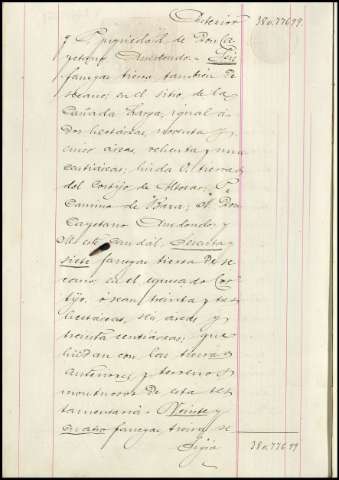 Anterior 380.776 99.
y O. propiedad de Don Ca-
yetano Arredondo. Seis
fanegas tierra tambien de
secano; en el sitio de la
Cañada Larga, igual á
dos hectáreas, noventa y
cinco áreas, ochenta y una
centiáreas; linda E. tierras
del Cortijo de Altozar,
Camino de Baza; Don
Cayetano Arredondo y
caudál. Sesenta y
siete fanegas tierra de se-
cano, en el espresado Cor-
tijo, ó sean treinta y tres
hectáreas, seis areas y
treinta centiáreas; que
lindan con las tierras
anteriores y terrenos
montuosos de esta tes-
tamentaria. Veinte y
cuatro fanegas, tierra de
Sigue 380.776 99